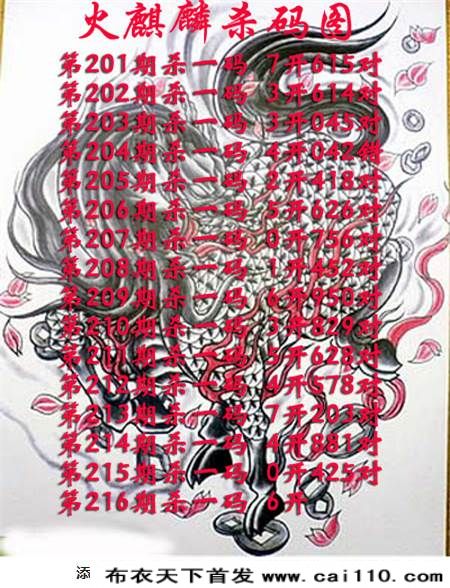 火麒麟杀码图
第201期杀一码 7开615对
第202期杀一码 3开614对
第203期杀一码 3开045对
第204期杀一码 4开042错
第205期杀一码 2开418对
第206期杀一码 5开626对
第207期杀一码 0开756对
第208期杀一码 1开452对
第209期杀一码 6开950对
第210期杀一码 3开829对
第211期杀一码 5开628对
第212期杀一码 4开578对
第213期杀一码 7开203对
第214期杀一码 4开881对
第215期杀一码 0开425对
第216期杀一码 6开
添 布衣天下首发 www.cai110.com